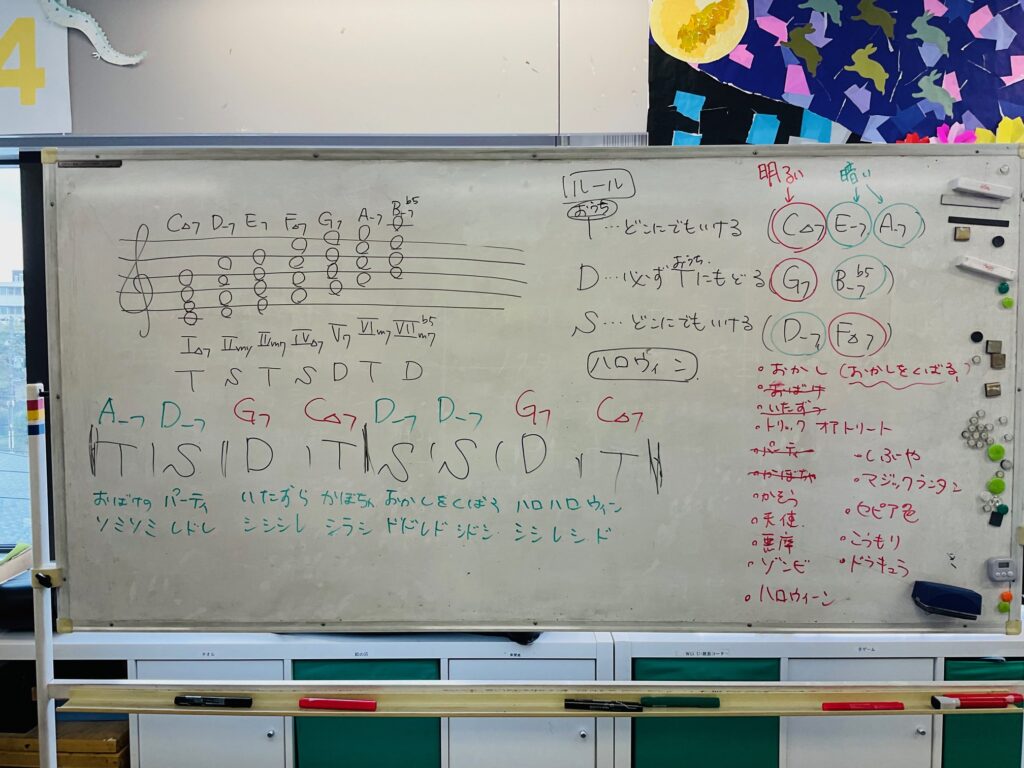 4
C△7 D-7 E-7 F△7 G7 A-7 B-7b5
I△7 IIm7 IIIm7 IV△7 V7 VIm7 VIIm7b5
T S T S D T D
A-7 D-7 G7 C△7 D-7 D-7 G7 C△7
T S D T S S D T
おばけの パーティ いたずら かぼちゃ おかしをくばる ハロハロウィーン
ソミソミ レドレ シシシレ シラシ ドドレド シドシ ミシレシド
ルール
おうち
T…どこにでもいける (C△7 E-7 A-7)
明るい 暗い
おうち
D…必ずTにもどる (G7 B-7b5)
S…どこにでもいける (D-7 F△7)
ハロウィン
・おかし (おかしをくばる)
・おばけ
・いたずら
・トリック オア トリート
・パーティー
・かぼちゃ
・かそう
・天使
・悪魔
・ゾンビ
・ハロウィーン
・しぶや
・マジックランタン
・セピア色
・こうもり
・ドラキュラ
タオル